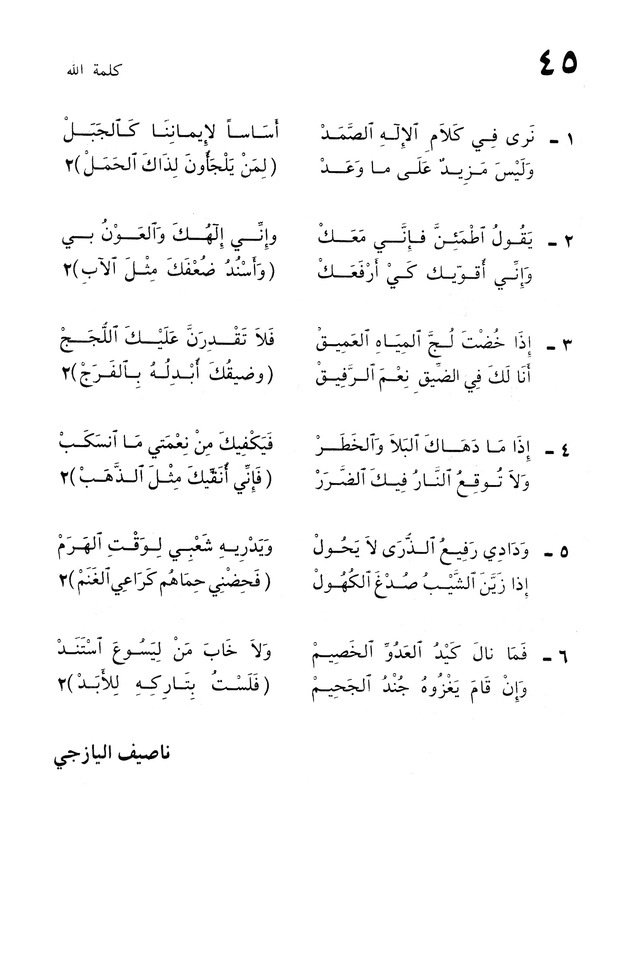 ٤٥
كلمة الله
١ - نَرى فِي كَلَامِ ٱلإِلٰهِ ٱلصَّمَدْ أَسَاساً لإِيمانِنَا كَٱلجَبَلْ
وَلَيْسَ مَزِيدٌ عَلَى ما وَعَدْ (لِمَنْ يَلْجَأُونَ لِذَاكَ ٱلحَمَلْ)٢
٢ - يَقُولُ ٱطْمَئِنَّ فَإِنَّي مَعَكْ وإِنِّي إِلٰهُكَ وَٱلعَوْنُ بي
وَإِنِّي أُقَوِّيكَ كَيْ أَرْفَعَكْ (وَأَسْنُدُ ضُعْفَكَ مِثْلَ ٱلآبِ)٢
٣ - إِذَا خُضْتَ لُجَّ ٱلمِيَاهِ ٱلعَمِيقْ فَلَا تَقْدِرَنَّ عَلَيْكَ ٱللُّجَجْ
أَنَا لَكَ فِي الضِّيقِ نِعْمَ ٱلرَّفِيقْ (وضِيقُكَ أُبْدِلُهُ بِٱلفَرَجْ)٢
٤ - إِذَا مَا دَهَاكَ ٱلبَلَا وَٱلخَطَرْ فَيَكْفِيكَ مِنْ نِعْمَتي مَا ٱنسَكَبْ
وَلَا تُوقِعُ ٱلنَّارُ فِيكَ ٱلضَّرَرْ (فَإِنِّي أُنَقِّيكَ مِثْلَ ٱلذَّهَبْ)٢
٥ - وَدَادِي رَفِيعُ ٱلذُّرَى لاَ يَحُولْ وَيَدْرِيهِ شَعْبِي لِوَقْتِ ٱلهَرَمْ
إِذا زَيَّنَ ٱلشَّيْبُ صُدْغَ ٱلكُهُولْ (فَحِضْنِي حِمَاهُم كَرَاعِي ٱلغَنَمْ)٢
٦ - فَمَا نالَ كَيْدُ ٱلعَدُوِّ ٱلخَصِيمْ وَلاَ خَابَ مَنْ لِيَسُوعَ ٱسْتَنَدْ
وَإِنْ قَامَ يَغْزُوهُ جُنْدُ ٱلجَحِيمْ (فَلَسْتُ بِتَارِكِهِ لِلأَبَدْ)٢
ناصيف اليازجي